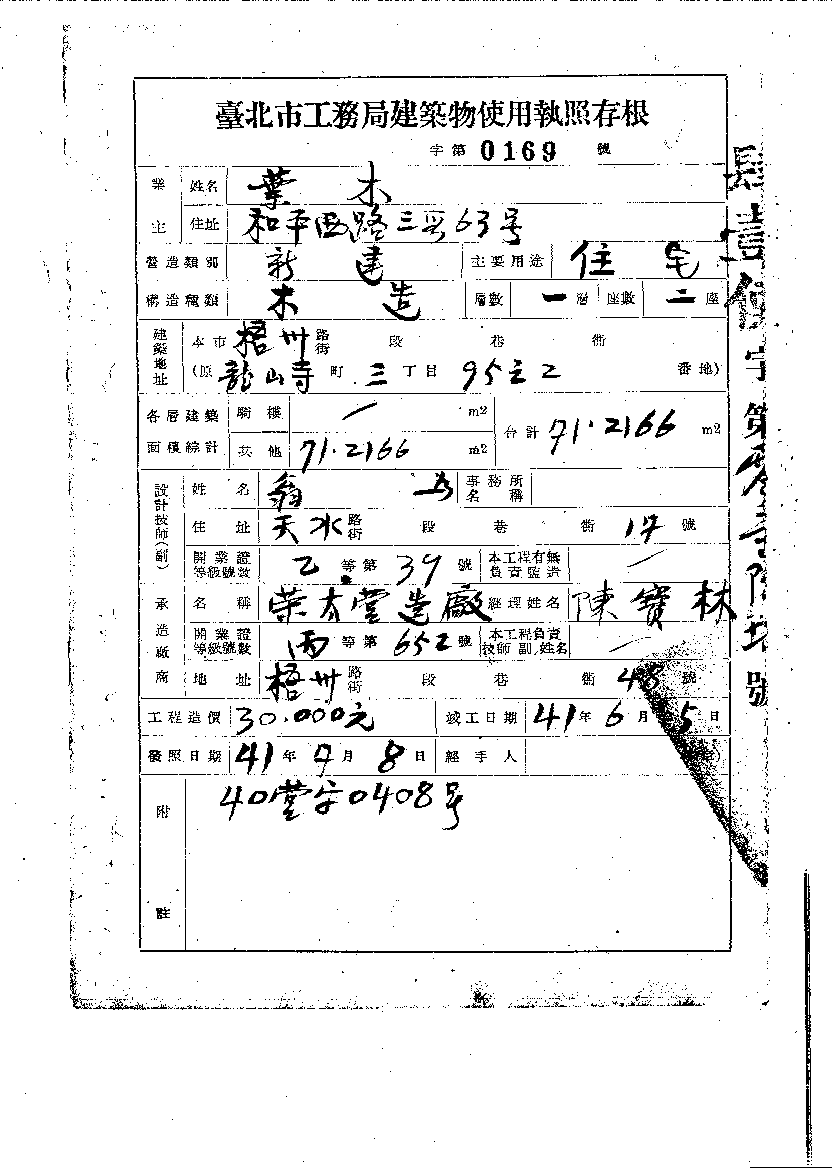 臺北市工務局建築物使用執照存根
字第 0169 號
業主 姓名 葉木
住址 和平西路三段63号
營造類別 新建 主要用途 住宅
構造種類 木造 層數 一層 座數 二座
建築地址 本市 梧州 路街 段 巷 衖
(原 龍山寺 町 三丁目 95之2 番地)
各層建築面積綜計 騎樓 / m2 合計 71.2166 m2
其他 71.2166 m2
設計技師(副) 姓名 翁 事務所名稱
住址 天水 路街 段 巷 衖 17 號
開業證等級號數 乙等第 39 號 本工程有無負責監造 /
承造廠商 名稱 榮太營造廠 經理姓名 陳寶林
開業證等級號數 丙等第 652 號 本工程負責技師(副)姓名 /
地址 梧州 路街 段 巷 衖 48 號
工程造價 30.000元 竣工日期 41年6月5日
發照日期 41年7月8日 經手人
附註 40營字0408号
字第 號